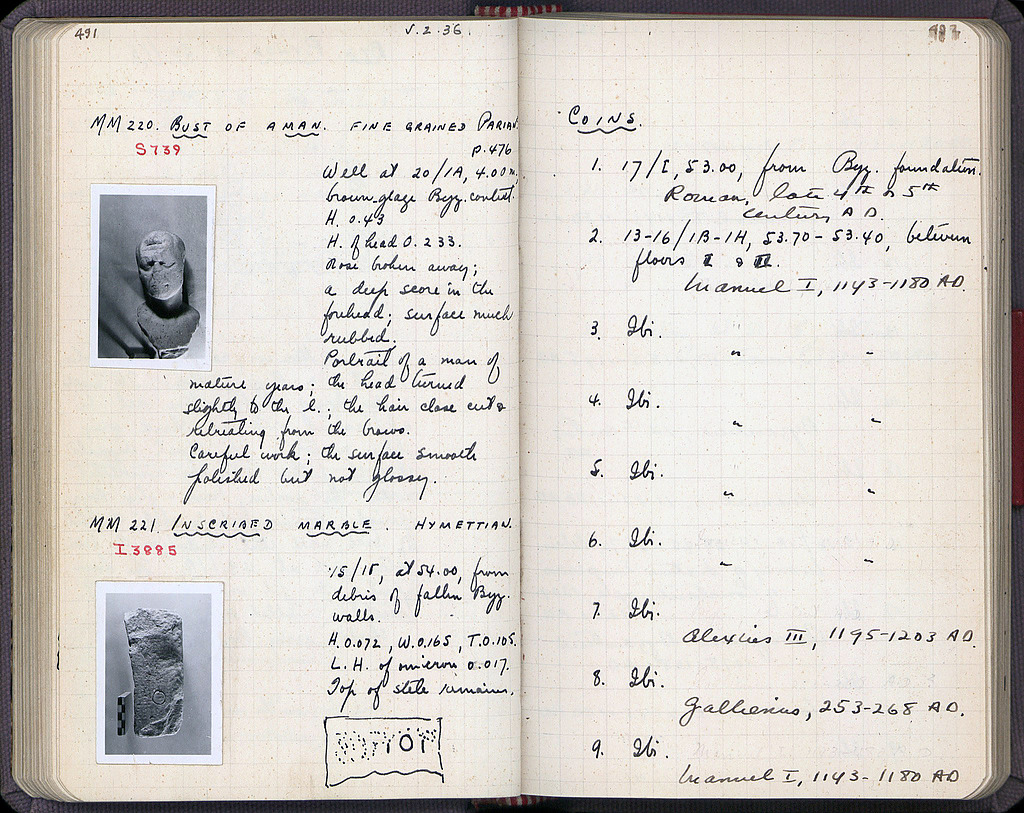 491
5.2.36.
MM 220. BUST OF A MAN. FINE GRAINED PARIAN.
S739
p.476
Well at 20/1A, 4.00m,
brown-glaze Byz. context.
H. 0.43
H. of head 0.233.
Nose broken away;
a deep score in the
forehead; surface much
rubbed.
Portrait of a man of
mature years; the head turned
slightly to the l.; the hair close cut &
retreating from the brows.
Careful work; the surface smooth
polished but not glossy.
MM 221. INSCRIBED MARBLE. HYMETTIAN.
I 3885
at 54.00, from
debris of fallen Byz.
walls.
H. 0.072, W. 0.165, T. 0.105.
L.H. of omicron 0.017.
Top of stele remains.
COINS.
1. 17/I, 53.00, from Byz. foundation.
Roman, late 4th or 5th
century A D.
2. 13-16/1B-1H, 53.70-53.40, between
floors I & II.
Manuel I, 1143-1180 AD.
3. Ibi.
" "
4. Ibi.
" "
5. Ibi.
" "
6. Ibi.
" "
7. Ibi.
Alexius III, 1195-1203 AD
8. Ibi.
Gallienus, 253-268 AD.
9. Ibi.
Manuel I, 1143-1180 AD